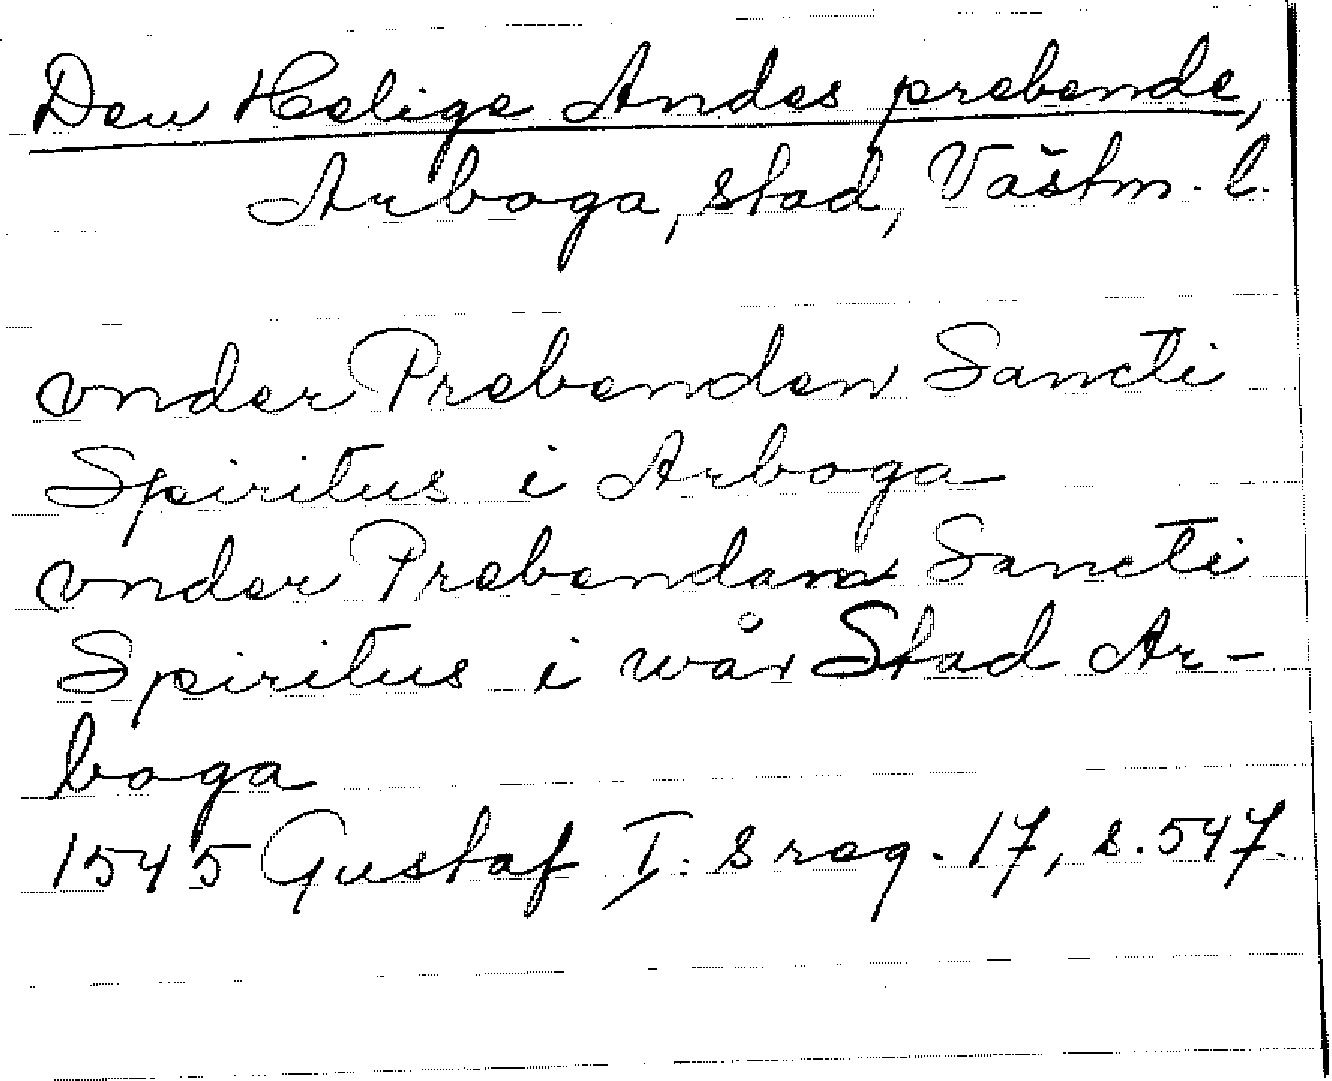 Den Helige Andes prebende,
Arboga, stad, Västm. l.
vnder Prebenden Sancti
Spiritus i Arboga
vnder Prebendam Sancti
Spiritus i wår Stad Ar-
boga
1545 Gustaf I:s reg. 17, s. 547.